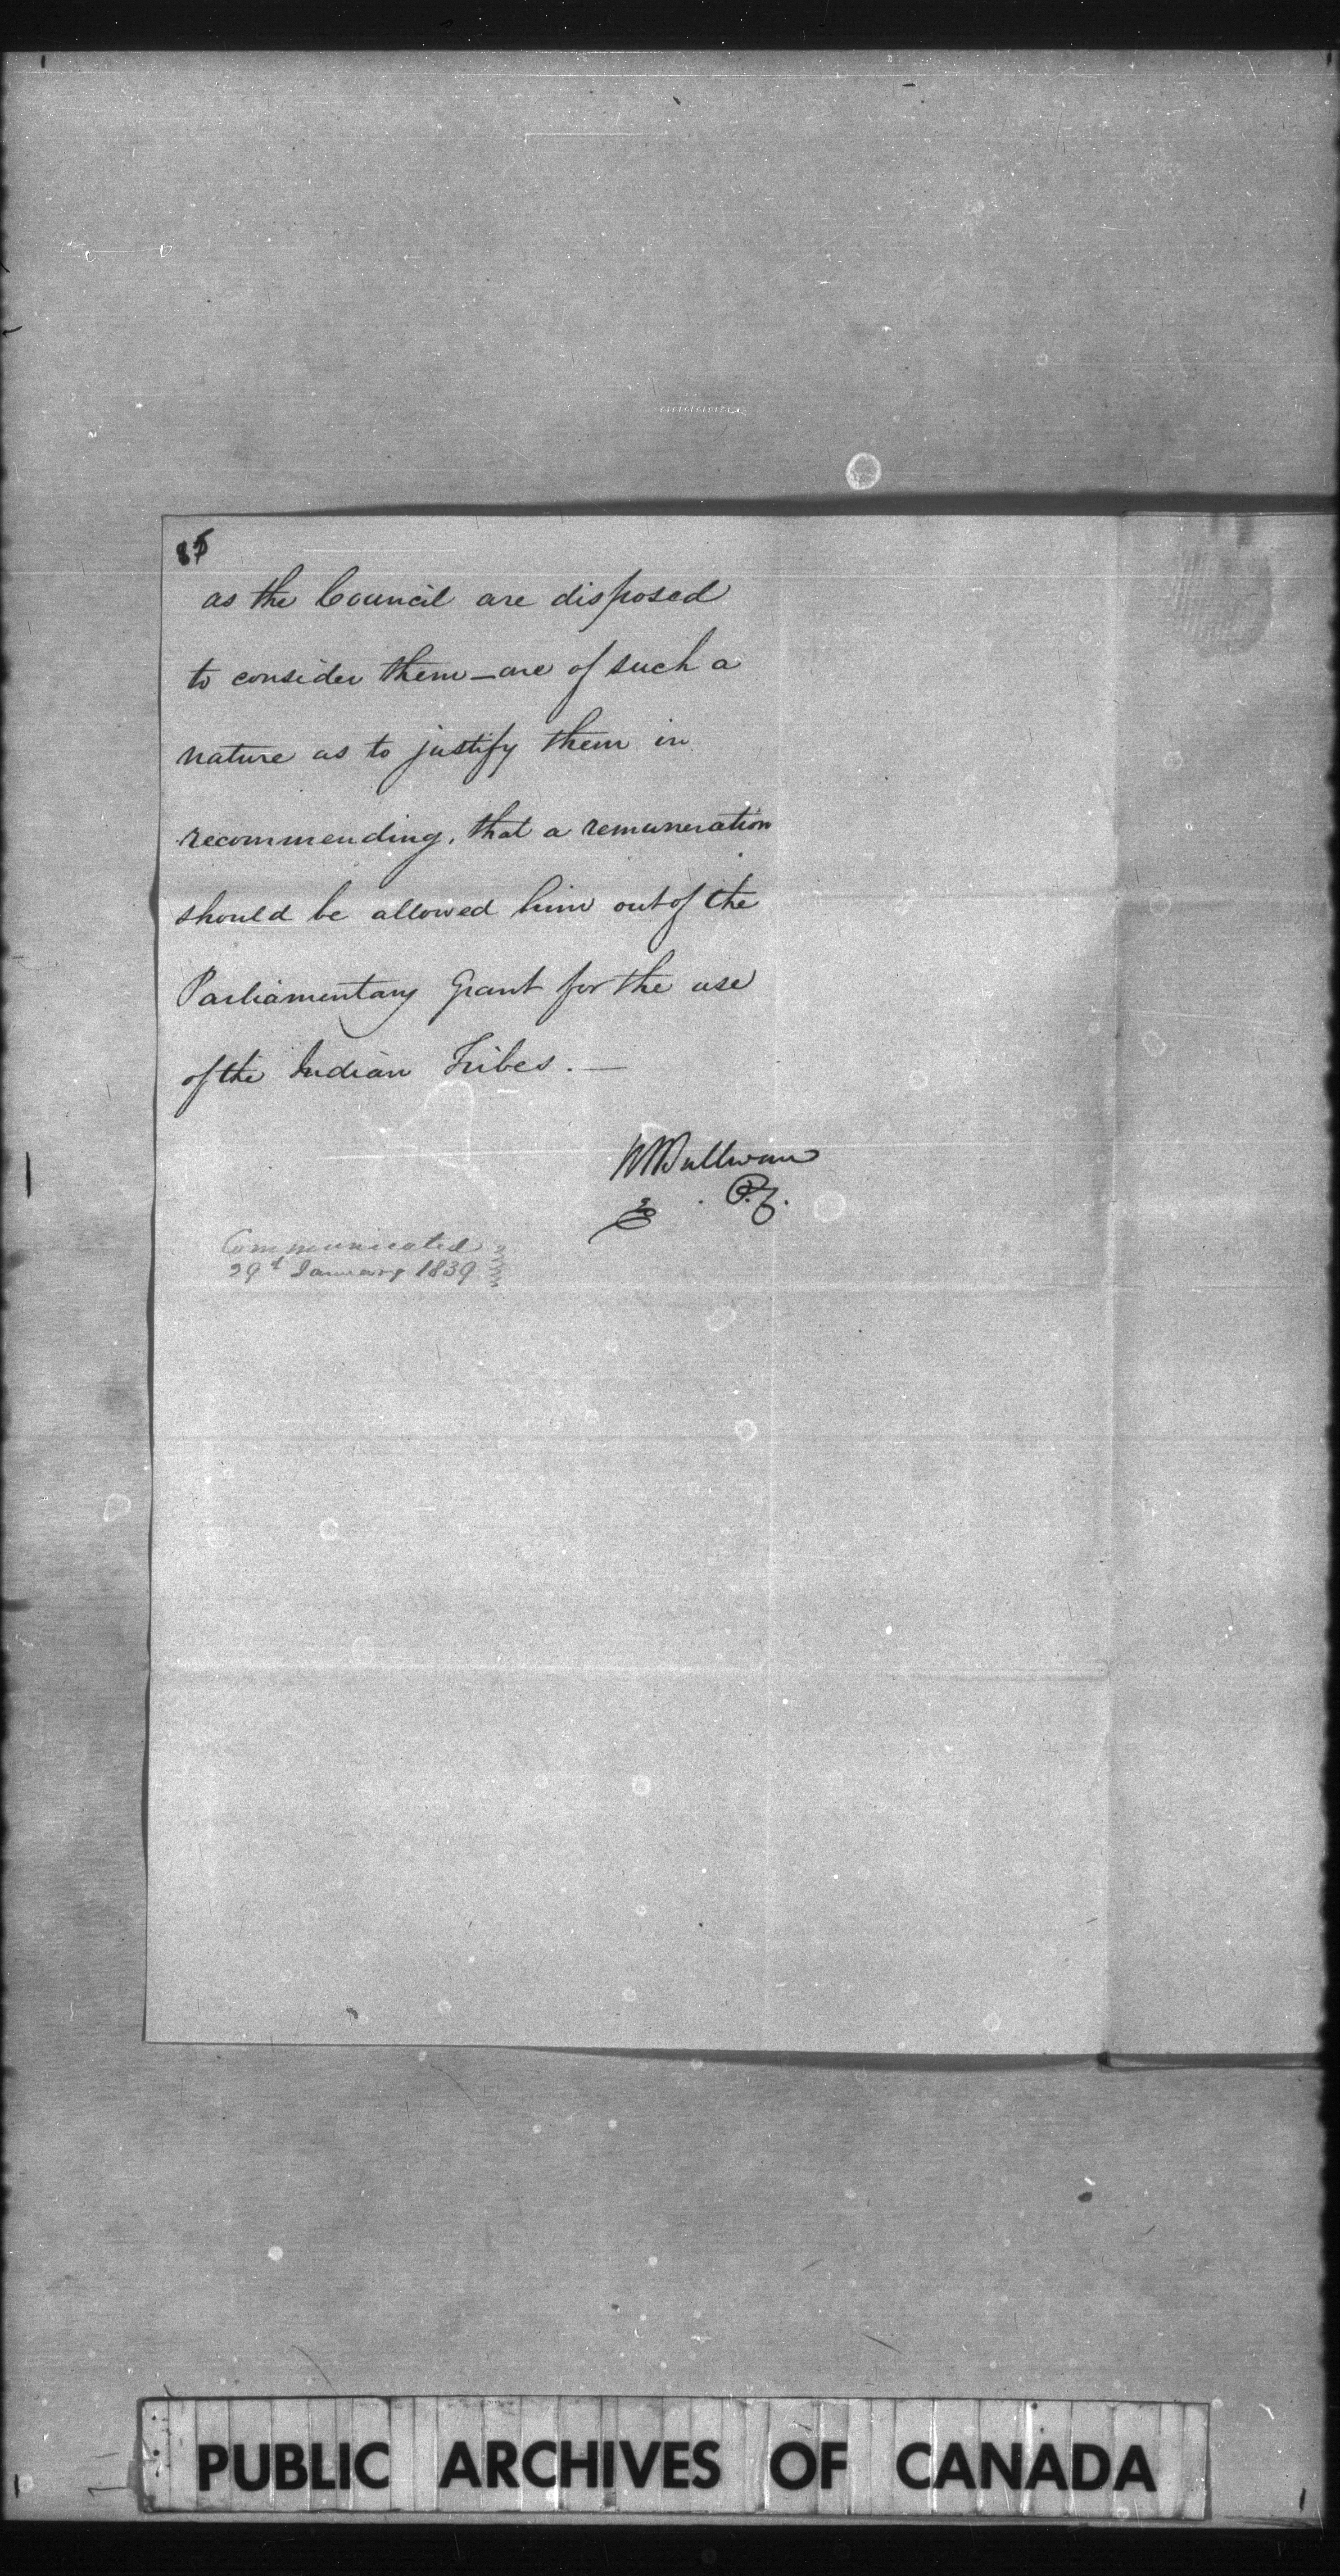 85
as the Council are disposed
to consider them – are of such a
nature as to justify them in
recommending, that a remuneration
should be allowed him out of the
Parliamentary Grant for the use
of the Indian Tribes. —
P.C.
Communicated
29th January 1839
PUBLIC ARCHIVES OF CANADA